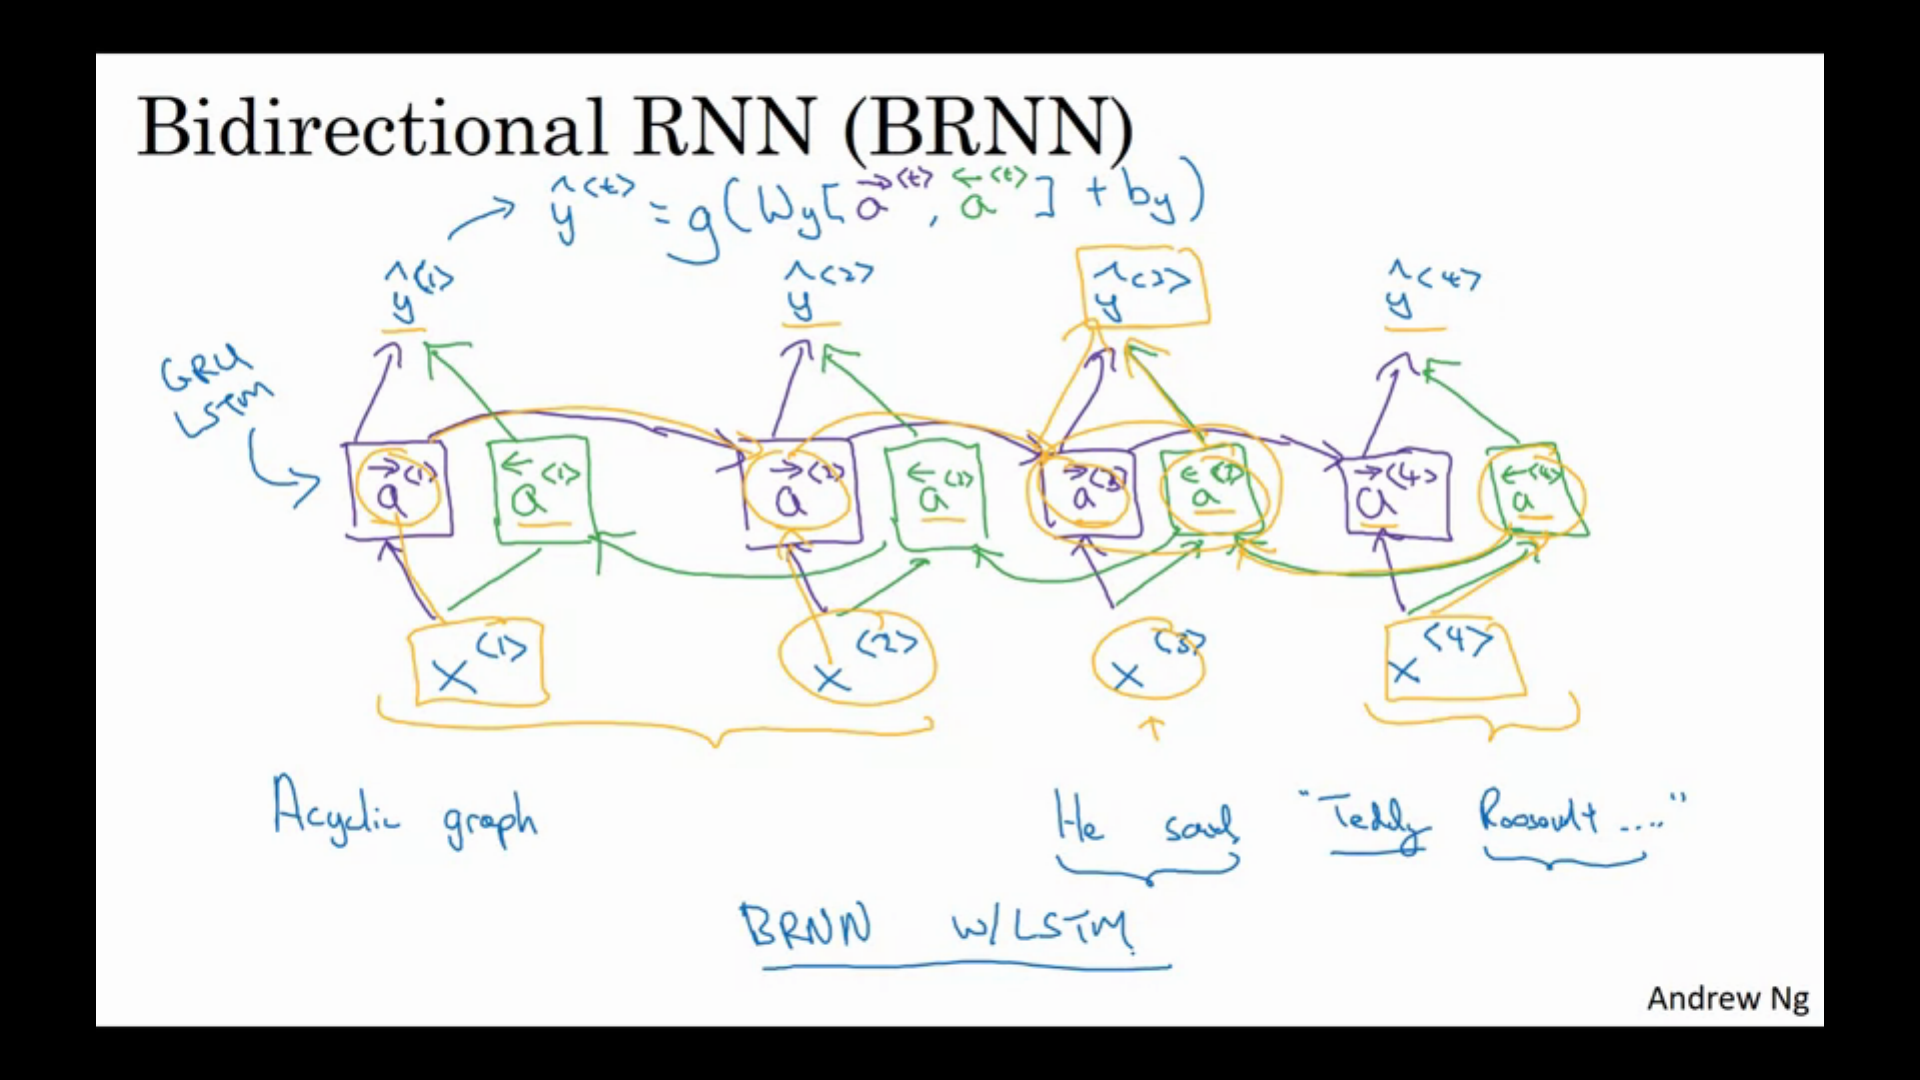 Bidirectional RNN (BRNN)
ŷ<t> = g(Wy[a→<t>, a←<t>] + by)
ŷ<1> ŷ<2> ŷ<3> ŷ<4>
GRU
LSTM
a→<1> a←<1> a→<2> a←<2> a→<3> a←<3> a→<4> a←<4>
x<1> x<2> x<3> x<4>
Acyclic graph He said, "Teddy Roosevelt ...."
BRNN w/LSTM
Andrew Ng